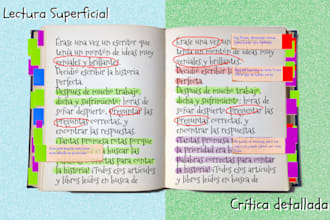 Lectura Superficial
Érase una vez un escritor que
tenía un montón de ideas muy
geniales y brillantes.
Decidió escribir la historia
perfecta.
Después de mucho trabajo,
dicha y sufrimiento: horas de
soñar despierto, Preguntar las
preguntas correctas, y
encontrar las respuestas.
¡Tantas promesa rotas porque
la buscar las
palabras para contar
la historia! ¡Todos esos artículos
y libros leídos en busca de
Érase una vez un escritor
tenía un montón de ideas muy
geniales y brillantes.
Decidió escribir la historia
perfecta.
Después de mucho
dicha y sufrimiento: horas de
soñar despierto, Preguntar las
preguntas correctas, y
encontrar las respuestas.
¡Tantas promesa
la prioridad era
Palabras correctas para contar
la historia! ¡Todos esos artículos
y libros leídos en busca de
Crítica detallada